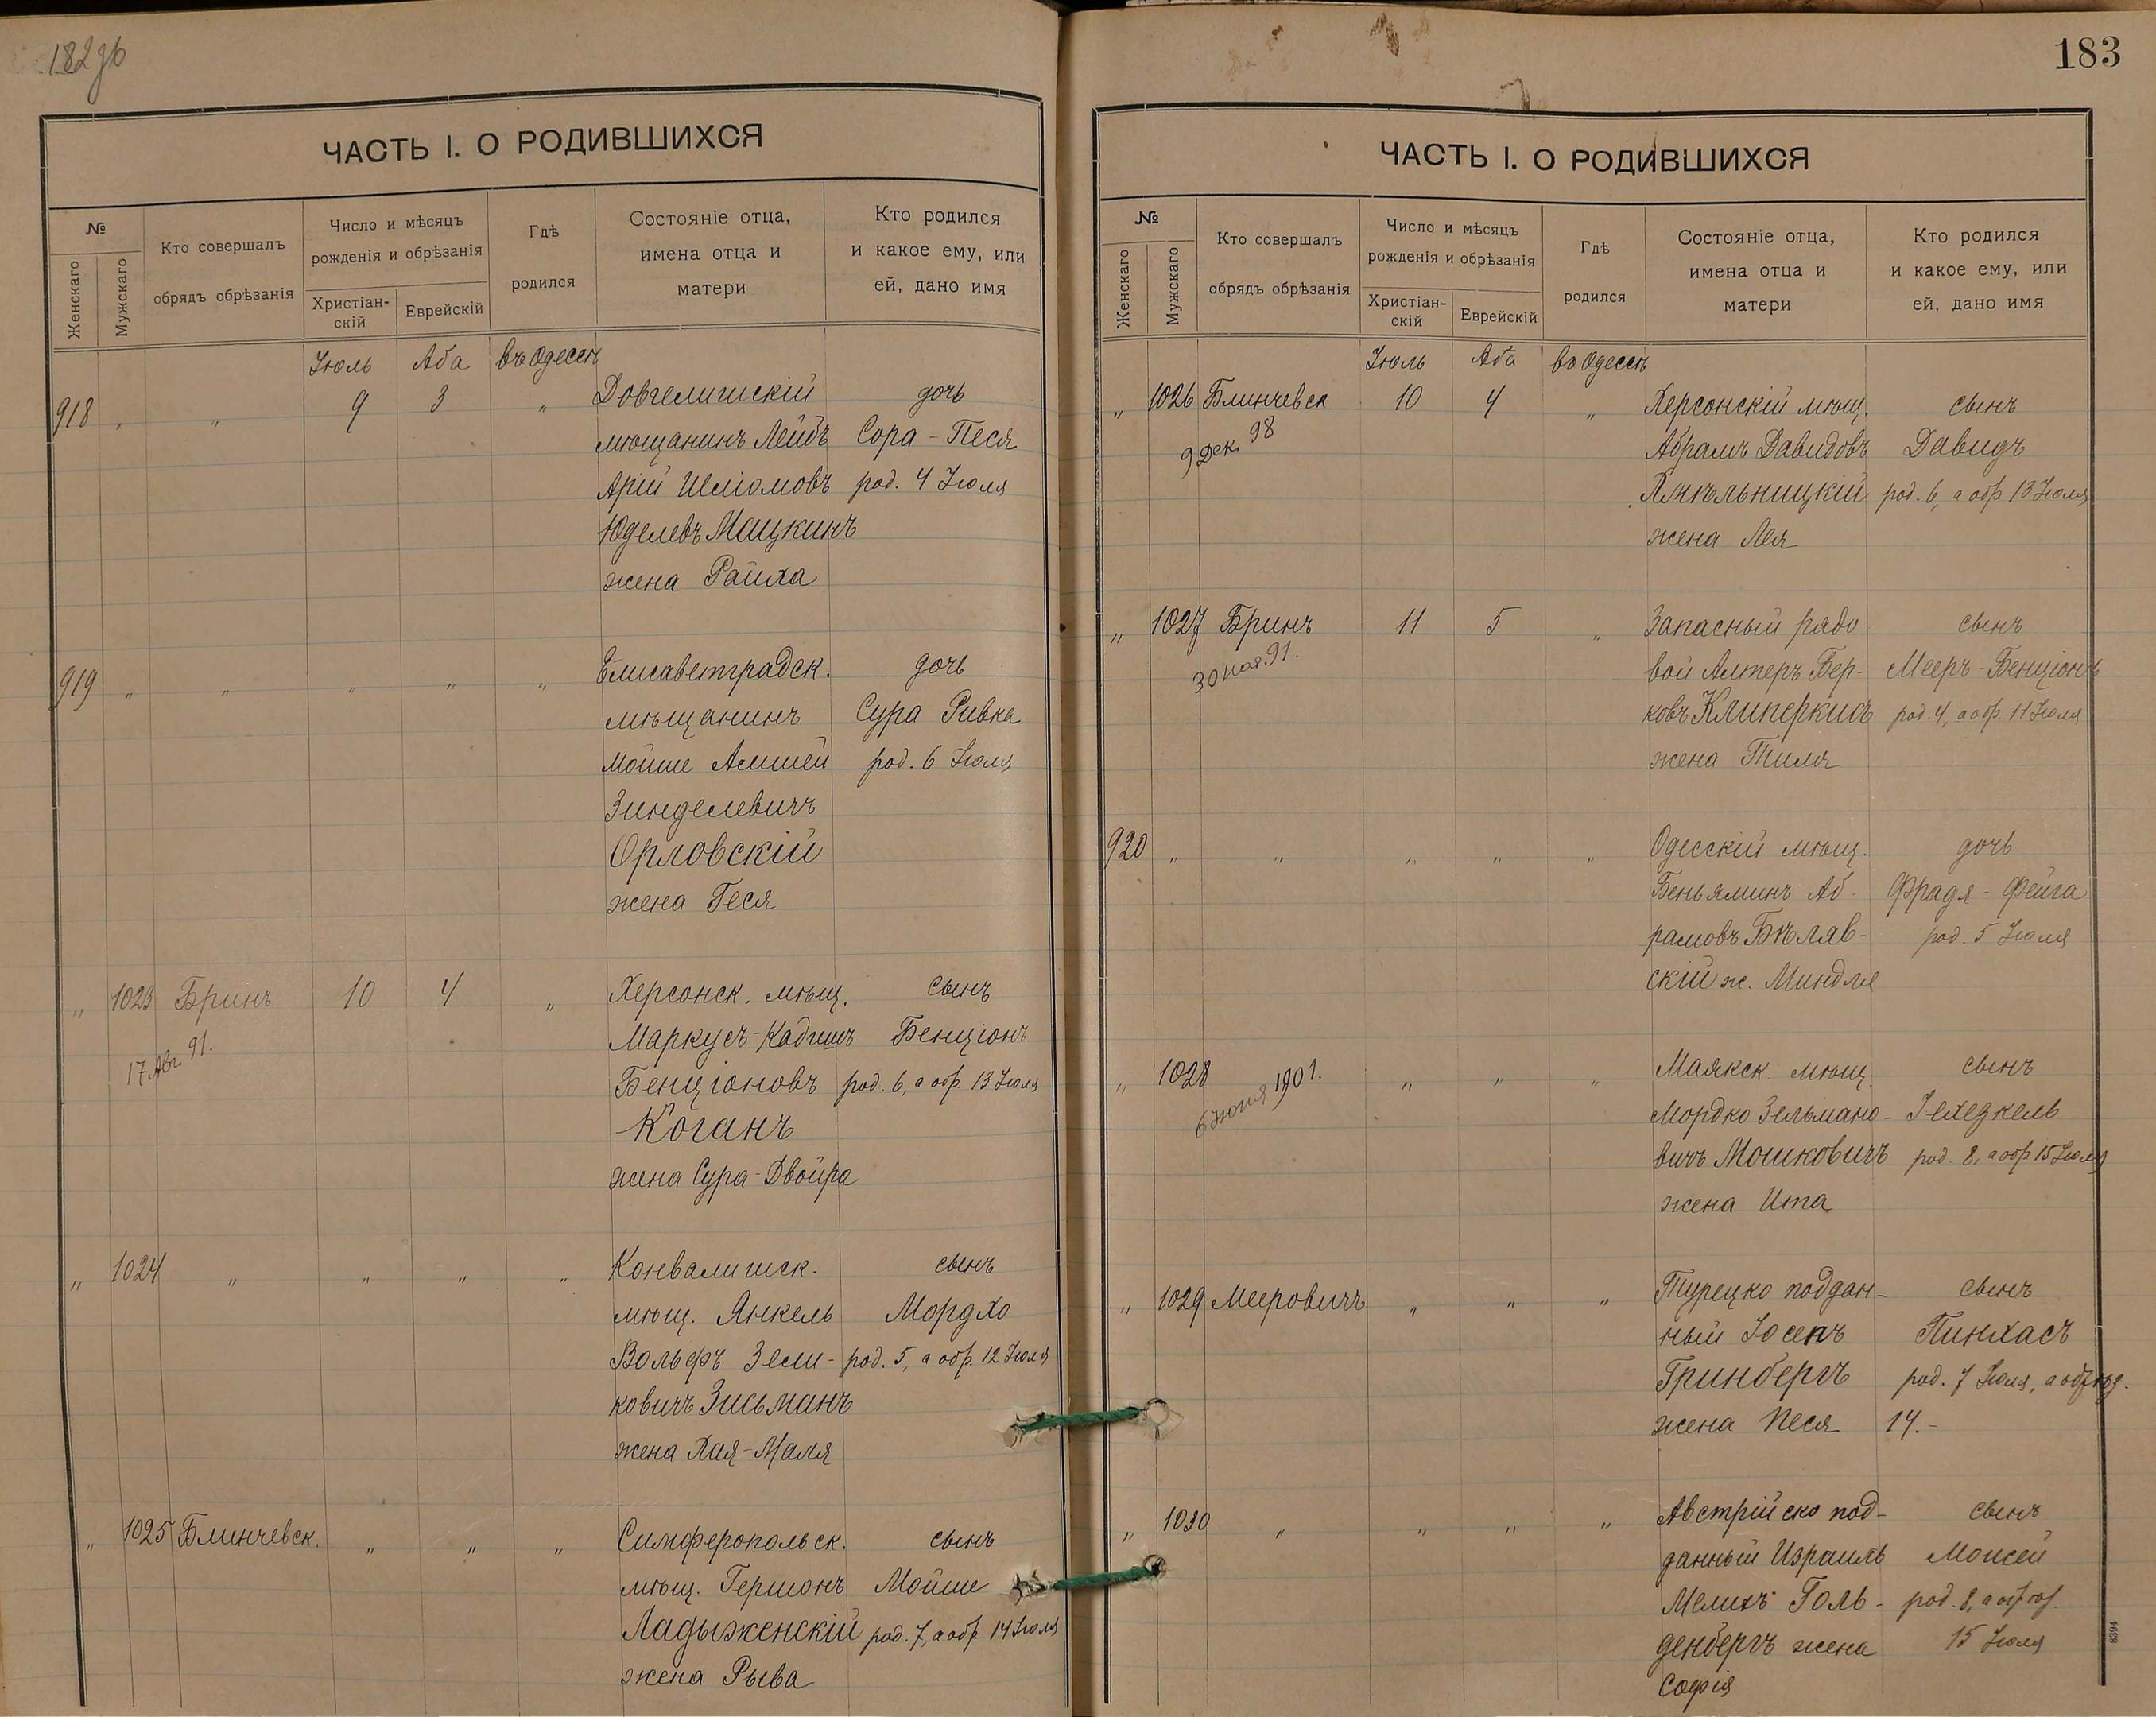 182 об
ЧАСТЬ I. О РОДИВШИХСЯ
№
Женскаго
Мужскаго
Кто совершалъ
обрядъ обрѣзанія
Число и мѣсяцъ
рожденія и обрѣзанія
Христіан-
скій
Еврейскій
Гдѣ
родился
Состояніе отца,
имена отца и
матери
Кто родился
и какое ему, или
ей, дано имя
Іюль Аба въ Одессѣ
918 „ „ 9 3 „ Довгелишскій дочь
мѣщанинъ Лейбъ Сора-Песя
Арій Шліомовъ род. 4 Іюля
Юделевъ Мацкинъ
жена Райха
919 „ „ „ „ „ Елисаветградск. дочь
мѣщанинъ Сура Ривка
Мойше род. 6 Іюля
Зинделевичъ
Орловскій
жена Геся
„ 1023 Бринъ 10 4 „ Херсонск. мѣщ. сынъ
17 Авг. 91.
Маркусъ-Кадишъ Бенціонъ
Бенціоновъ род. 6, а обр. 13 Іюля
Коганъ
жена Сура-Двойра
„ 1024 „ „ „ „ Конвалишск. сынъ
мѣщ. Янкель Мордхо
Вольфъ Зели- род. 5, а обр. 12 Іюля
ковичъ Зисьманъ
жена Хая-Маля
„ 1025 Блинчевск. „ „ „ Симферопольск. сынъ
мѣщ. Гершонъ Мойше
Ладыженскій род. 7, а обр. 14 Іюля
жена Рыва
183
ЧАСТЬ I. О РОДИВШИХСЯ
№
Женскаго
Мужскаго
Кто совершалъ
обрядъ обрѣзанія
Число и мѣсяцъ
рожденія и обрѣзанія
Христіан-
скій
Еврейскій
Гдѣ
родился
Состояніе отца,
имена отца и
матери
Кто родился
и какое ему, или
ей, дано имя
Іюль Аба въ Одессѣ
„ 1026 Блинчевск 10 4 „ Херсонскій мѣщ. сынъ
9 Дек. 98
Абрамъ Давидовъ Давидъ
Хмѣльницкій род. 6, а обр. 13 Іюля
жена Лея
„ 1027 Бринъ 11 5 „ Запасный рядо сынъ
30 Ноя. 91.
вой Алтеръ Бер- Мееръ-Бенціонъ
ковъ род. 4, а обр. 11 Іюля
жена Тиля
920 „ „ „ „ „ Одесскій мѣщ. дочь
Беньяминъ Аб- Фрадя-Фейга
рамовъ Бѣляв- род. 5 Іюля
скій ж. Миндля
„ 1028 „ „ „ Маякск. мѣщ. сынъ
1901.
Мордко Зельмано- Іехезкель
вичъ Мошковичъ род. 8, а обр. 15 Іюля
жена Ита
„ 1029 Мееровичъ „ „ „ Турецко поддан- сынъ
ный Іосепъ Пинхасъ
Гринбергъ род. 7 Іюля, а обр.
жена Песя 14.-
„ 1030 „ „ „ „ Австрійско под- сынъ
данный Израиль Моисей
Мелихъ Голь- род. 8, а обр.
денбергъ жена 15 Іюля
Софія
8394